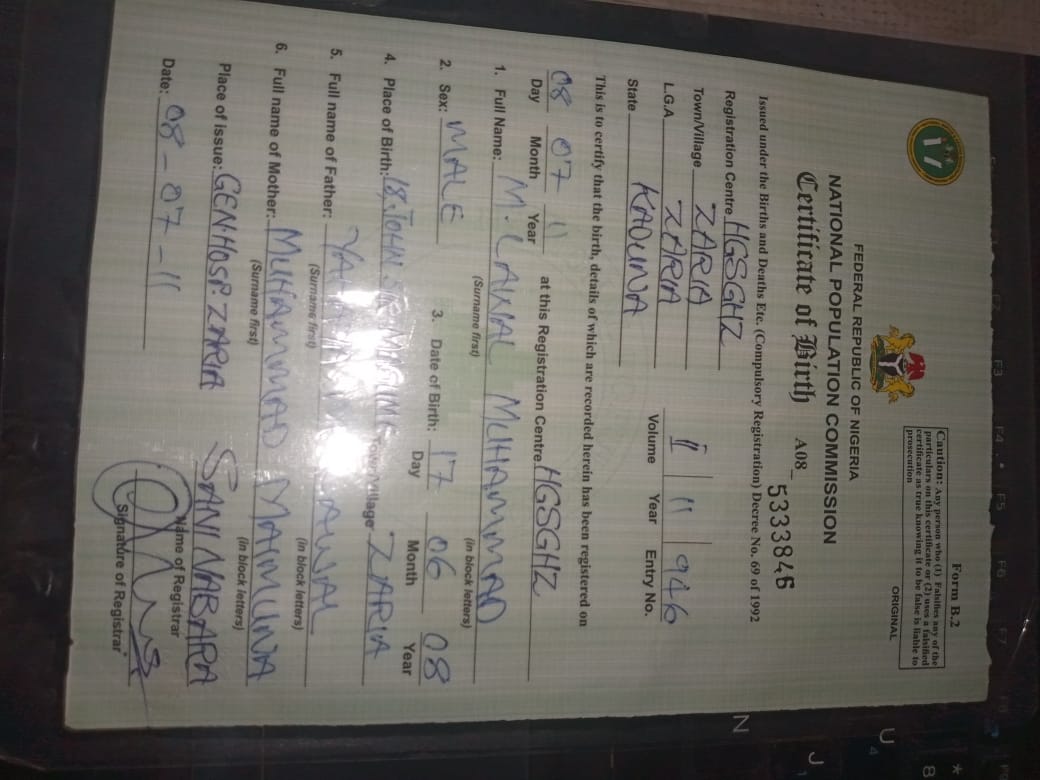 17
Form B.2
Caution: Any person who (1) Falsifies any of the
particulars on this certificate or (2) uses a falsified
certificate as true knowing it to be false is liable to
prosecution
ORIGINAL
FEDERAL REPUBLIC OF NIGERIA
NATIONAL POPULATION COMMISSION
Certificate of Birth
A08 5333846
Issued under the Births and Deaths Etc. (Compulsory Registration) Decree No. 69 of 1992
Registration Centre HGSGHZ
Town/Village ZARIA
L.G.A ZARIA
State KADUNA
II 11 946
Volume Year Entry No.
This is to certify that the birth, details of which are recorded herein has been registered on
08 07 11 at this Registration Centre HGSGHZ
Day Month Year
1. Full Name: MUHAMMAD
(Surname first) (in block letters)
2. Sex: MALE 3. Date of Birth: 17 06 08
Day Month Year
4. Place of Birth: Town/Village ZARIA
5. Full name of Father: AUWAL
(Surname first) (in block letters)
6. Full name of Mother: MUHAMMAD MAIMUNA
(Surname first) (in block letters)
Place of issue: GEN. HOSP. ZARIA SANI NABARA
Name of Registrar
Date: 08-07-11
Signature of Registrar
N
U
4
J
1
*
8
F3
F4
F5
F6
F7